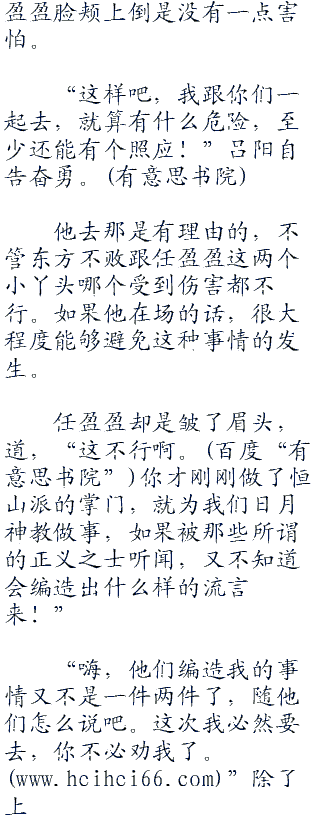 盈盈脸颊上倒是没有一点害
怕。
“这样吧，我跟你们一
起去，就算有什么危险，至
少还能有个照应！”吕阳自
告奋勇。(有意思书院)
他去那是有理由的，不
管东方不败跟任盈盈这两个
小丫头哪个受到伤害都不
行。如果他在场的话，很大
程度能够避免这种事情的发
生。
任盈盈却是皱了眉头，
道，“这不行啊。(百度“有
意思书院”)你才刚刚做了恒
山派的掌门，就为我们日月
神教做事，如果被那些所谓
的正义之士听闻，又不知道
会编造出什么样的流言
来！”
“嗨，他们编造我的事
情又不是一件两件了，随他
们怎么说吧。这次我必然要
去，你不必劝我了。
(www.hcihci66.com)”除了
上